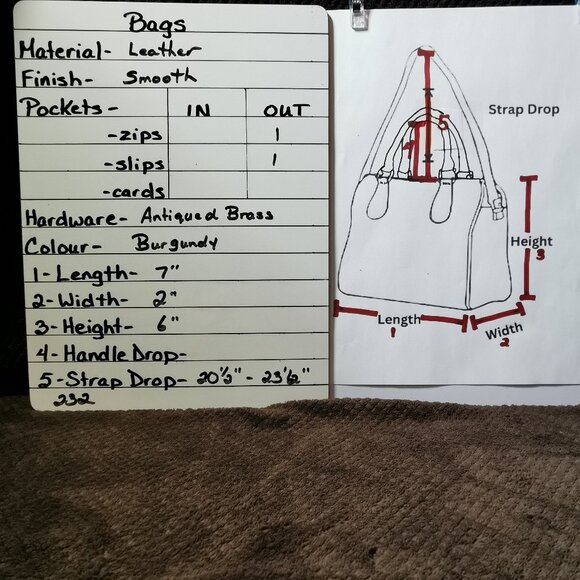 Bags
Material- Leather
Finish- Smooth
Pockets- IN OUT
-zips 1
-slips 1
-cards
Hardware- Antiqued Brass
Colour- Burgundy
1-Length- 7"
2-Width- 2"
3-Height- 6"
4-Handle Drop-
5-Strap Drop- 20½" - 23½"
232
Strap Drop
5
4
Height
3
Length
1
Width
2